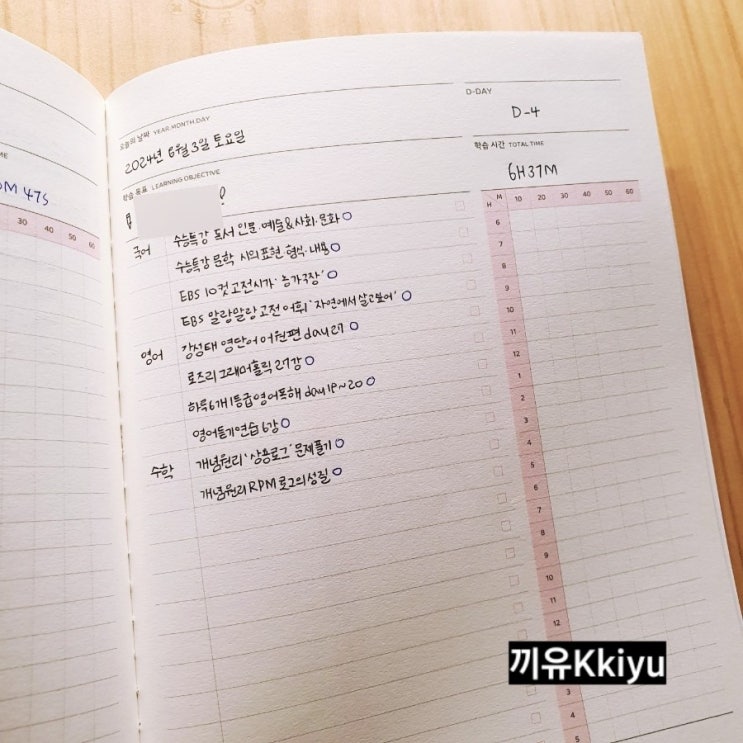 D-DAY
D-4
오늘의 날짜 YEAR.MONTH.DAY
2024년 6월 3일 토요일
학습 시간 TOTAL TIME
6H 37M
학습 목표 LEARNING OBJECTIVE
국어 수능특강 독서 인문·예술&사회·문화 O
수능특강 문학 시의 표현·형식·내용 O
EBS 10컷 고전시가 '농가구장' O
EBS 말랑말랑 고전어휘 '자연에서 살고보어' O
영어 강성태 영단어 어원편 day 27 O
로즈리 그래머홀릭 27강 O
하루 6개 1등급 영어독해 day 19~20 O
영어듣기연습 6강 O
수학 개념원리 '상용로그' 문제풀기 O
개념원리 RPM 로그의 성질 O
M
H 10 20 30 40 50 60
6
7
8
9
10
11
12
1
2
3
4
5
6
7
8
9
10
11
12
3
4
5
TIME
M 47S
30 40 50 60
끼유Kkiyu